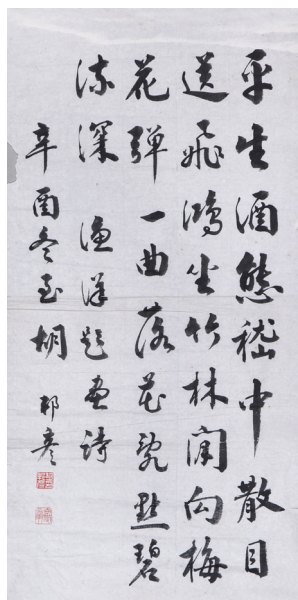 平生酒態嵇中散目
送飛鴻坐竹林閒向梅
花彈一曲落花亂點碧
流深 漁洋題畫詩
辛酉冬至胡邦彥